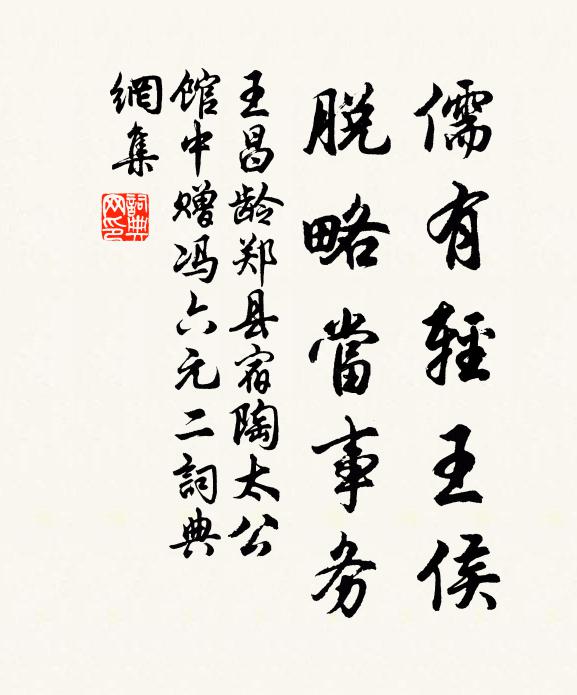 儒有輕王侯
脱略當事务
王昌龄郑县宿陶太公
馆中赠冯六元二詞典
網集
詞典
网印